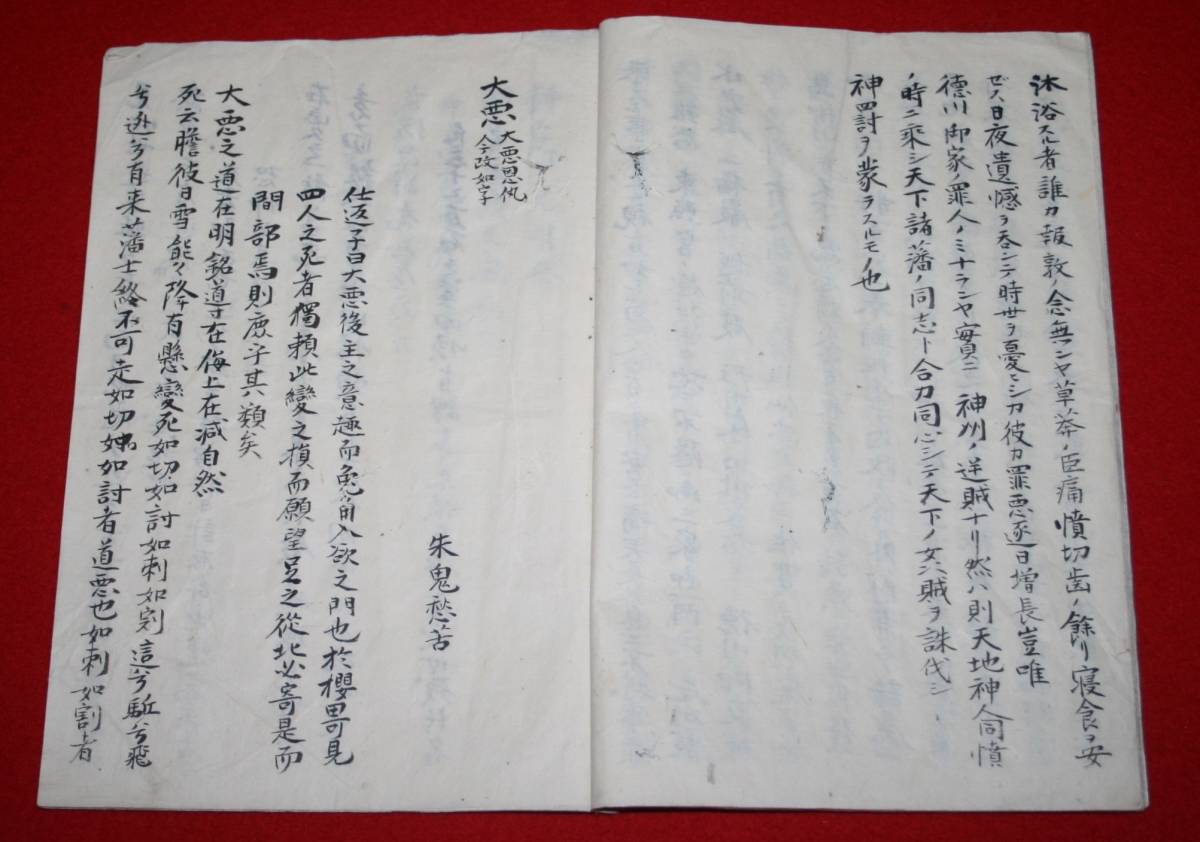 沐浴スル者誰カ報敦ノ念無ンヤ草莽ノ臣痛憤切歯ノ餘リ寝食ヲ安
ゼス日夜遺憾ヲ呑ンテ時世ヲ憂ヒシカ彼カ罪悪逐日増長豈唯
徳川御家ノ罪人ノミナランヤ實ニ神州ノ逆賊ナリ然ハ則天地神人同憤
ノ時ニ乘シ天下諸藩ノ同志ト合力同心シテ天下ノ賊ヲ誅伐シ
神罰ヲ蒙ラスルモノ也
大悪 大悪思仇
今改如字
朱鬼愁苦
仕返子曰大悪後主之意趣而兔角入欲之門也於櫻田可見
四人之死者獨頼此變之損而願望足之從此必寄是而
間部焉則庶字其八類矣
大悪之道在明銘道寸在侮上在减自然
死云贍彼日雪能々降有懸變死如切如討如刺如割這兮駈兮飛
兮逃兮有来藩士終不可走如切如討者道悪也如刺如割者